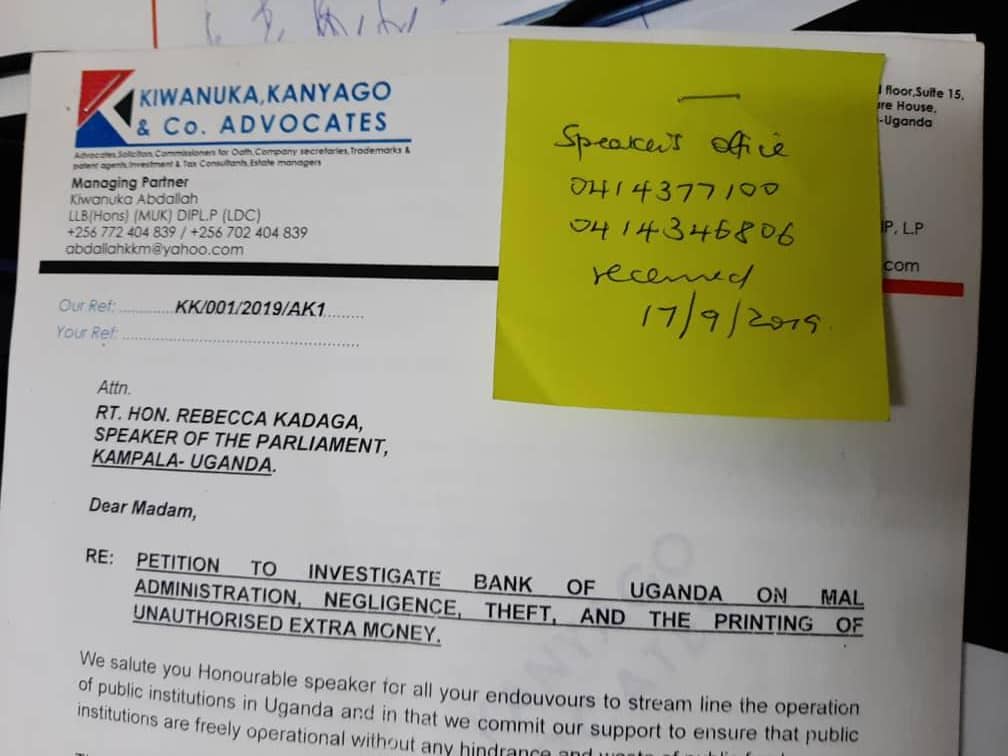 KIWANUKA,KANYAGO
& Co. ADVOCATES
Advocates,Solicitors,Commissioners for Oath,Company secretaries,Trademarks &
patent agents,Investment & Tax Consultants,Estate managers
Managing Partner
Kiwanuka Abdallah
LLB(Hons) (MUK) DIPL.P (LDC)
+256 772 404 839 / +256 702 404 839
abdallahkkm@yahoo.com
floor,Suite 15,
House,
-Uganda
L.P
com
Speaker's office
0414377100
0414346806
received
17/9/2019.
Our Ref: ............KK/001/2019/AK1........
Your Ref: ....................................................
Attn.
RT. HON. REBECCA KADAGA,
SPEAKER OF THE PARLIAMENT,
KAMPALA- UGANDA.
Dear Madam,
RE: PETITION TO INVESTIGATE BANK OF UGANDA ON MAL
ADMINISTRATION, NEGLIGENCE, THEFT, AND THE PRINTING OF
UNAUTHORISED EXTRA MONEY.
We salute you Honourable speaker for all your endouvours to stream line the operation
of public institutions in Uganda and in that we commit our support to ensure that public
institutions are freely operational without any hindrance and